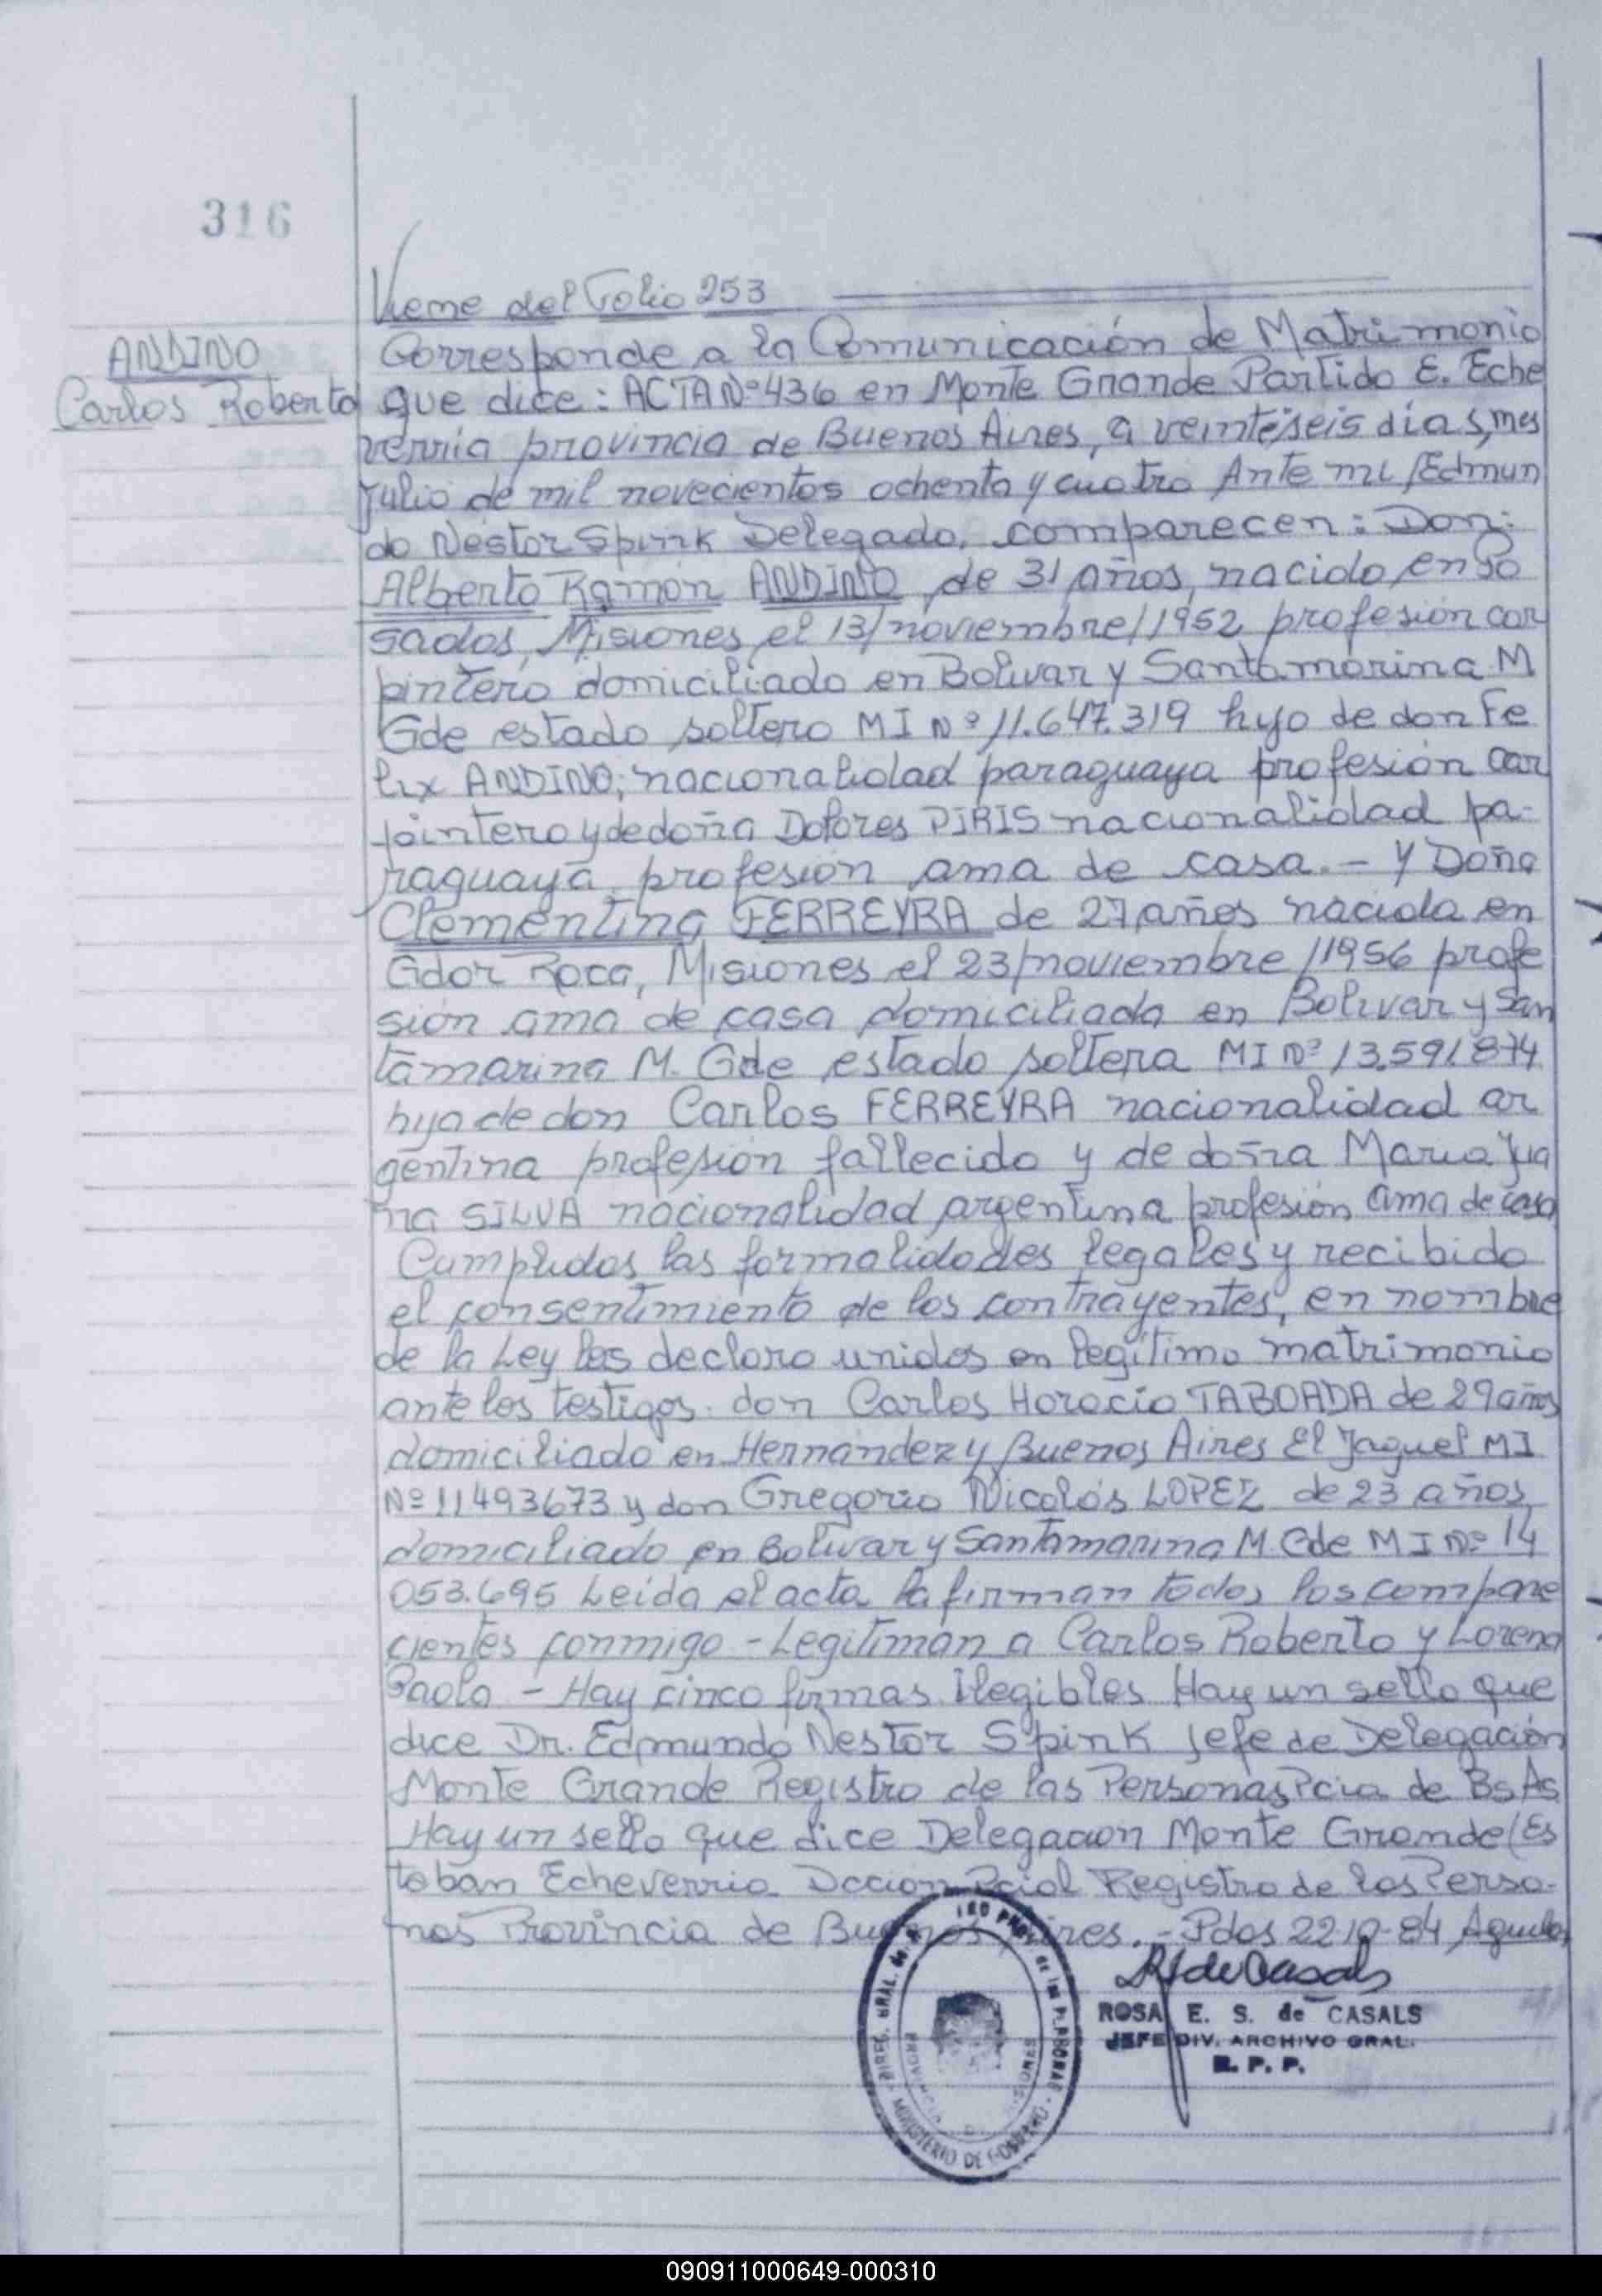 316
Viene del Folio 253
ANDINO
Carlos Roberto
Corresponde a la Comunicación de Matrimonio
que dice: ACTA Nº 436 en Monte Grande Partido E. Eche
verría provincia de Buenos Aires, a veintiseis días, mes
Julio de mil novecientos ochenta y cuatro Ante mi Edmun
do Néstor Spink Delegado, comparecen: Don:
Alberto Ramón ANDINO de 31 años, nacido en Po
sadas, Misiones, el 13/noviembre/1952 profesión car
pintero domiciliado en Bolivar y Santamarina M
Gde estado soltero MI Nº 11.647.319 hijo de don Fe
lix ANDINO; nacionalidad paraguaya profesión car
pintero y de doña Dolores PIRIS nacionalidad pa-
raguaya profesión ama de casa. - Y Doña
Clementina FERREYRA de 27 años nacida en
Gdor Roca, Misiones el 23/noviembre/1956 profe
sión ama de casa domiciliada en Bolivar y San
tamarina M. Gde estado soltera MI Nº 13.591.874
hija de don Carlos FERREYRA nacionalidad ar
gentina profesión fallecido y de doña Maria Jua
na SILVA nacionalidad argentina profesión ama de casa
Cumplidas las formalidades legales y recibido
el consentimiento de los contrayentes, en nombre
de la Ley los declaro unidos en legítimo matrimonio
ante los testigos don Carlos Horacio TABOADA de 29 años
domiciliado en Hernandez y Buenos Aires El Jaguel MI
Nº 11493673 y don Gregorio Nicolás LOPEZ de 23 años
domiciliado en Bolivar y Santamarina M. Gde MI Nº 14
053.695 Leída el acta la firman todos los compare
cientes conmigo - Legitiman a Carlos Roberto y Lorena
Paola - Hay cinco firmas ilegibles Hay un sello que
dice Dr. Edmundo Nestor Spink Jefe de Delegación
Monte Grande Registro de las Personas Pcia de Bs As
Hay un sello que dice Delegación Monte Grande (Es
teban Echeverria Dccion Pcial Registro de las Perso-
nas Provincia de Buenos Aires. - Pdas 22-10-84
ROSA E. S. de CASALS
JEFE DIV. ARCHIVO GRAL.
R. P. P.
MINISTERIO DE GOBIERNO
090911000649-000310